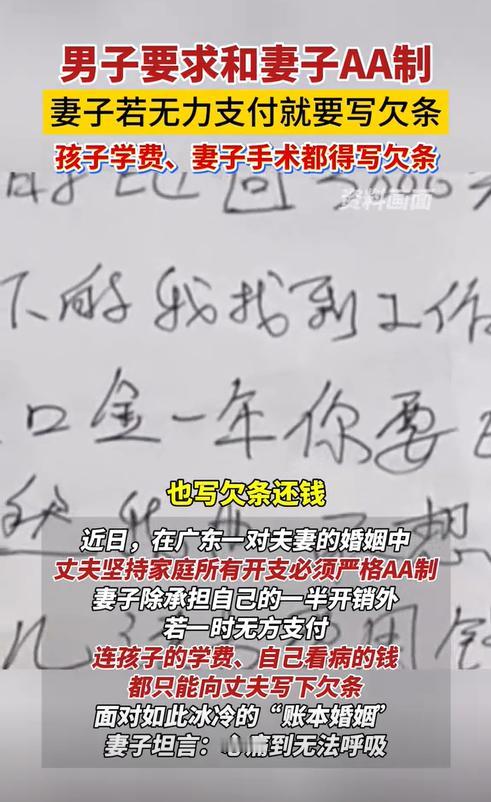 男子要求和妻子AA制
妻子若无力支付就要写欠条
孩子学费、妻子手术都得写欠条
资料画面
下的我找到工作
口金一年你要
也写欠条还钱
近日，在广东一对夫妻的婚姻中
丈夫坚持家庭所有开支必须严格AA制
妻子除承担自己的一半开销外
若一时无方支付
连孩子的学费、自己看病的钱
都只能向丈夫写下欠条
面对如此冰冷的“账本婚姻”
妻子坦言：心痛到无法呼吸